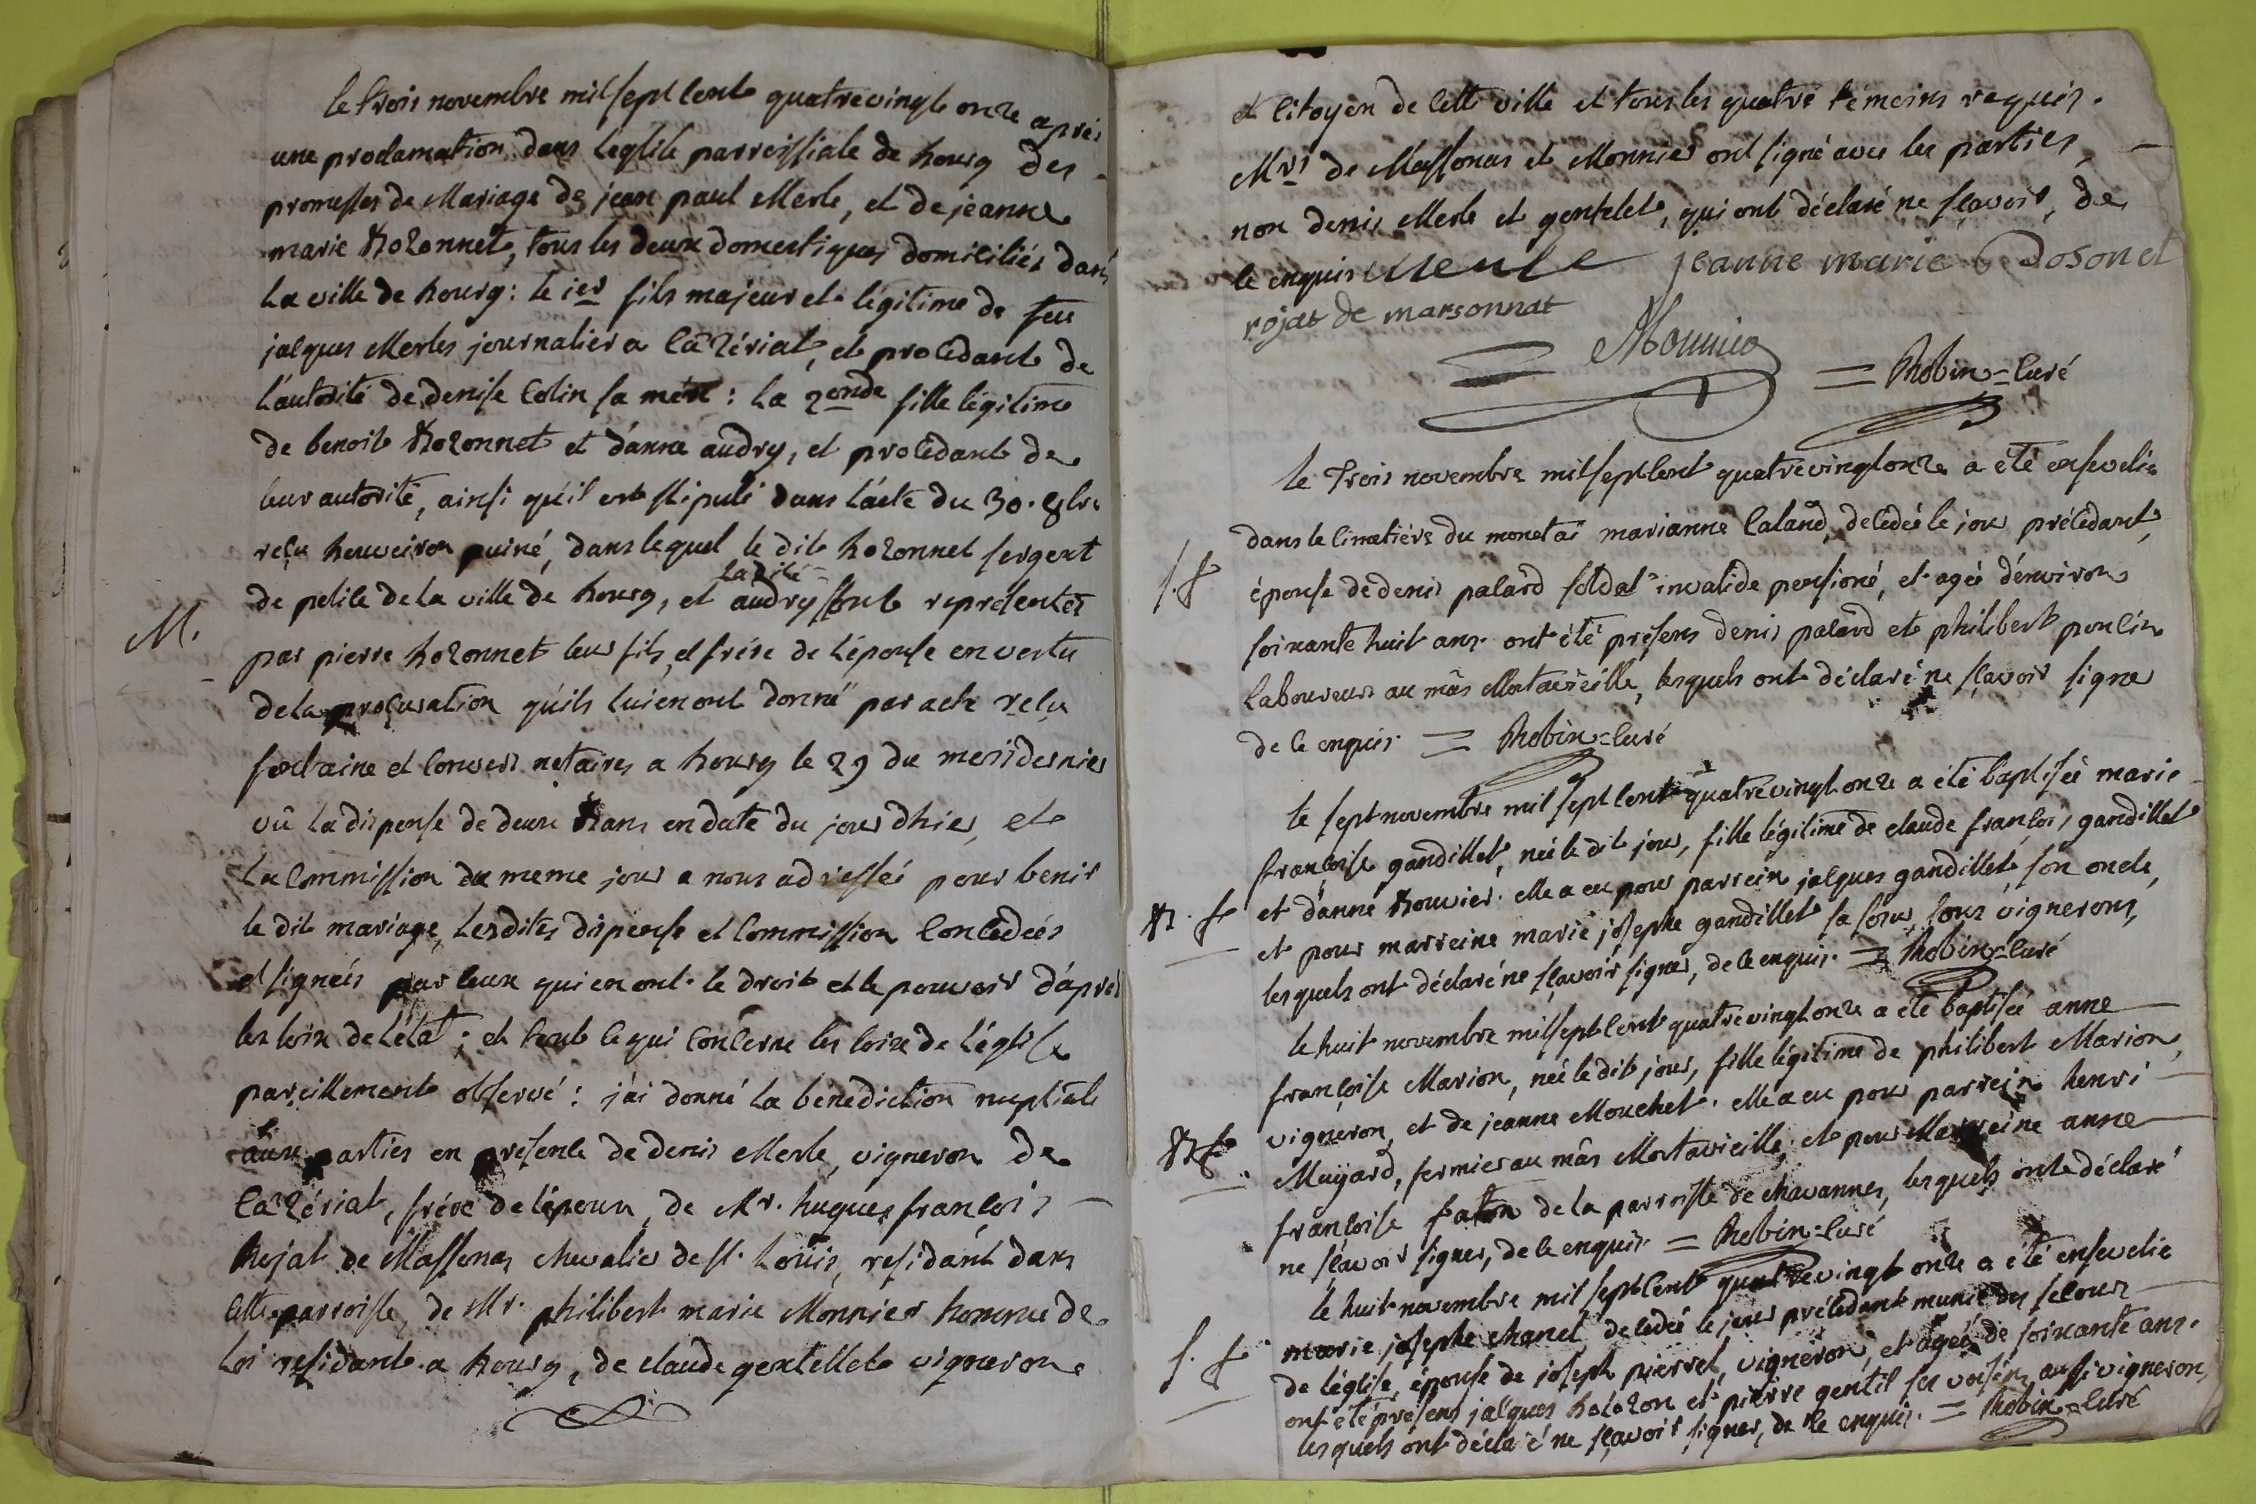 le trois novembre mil sept cent quatrevingt onze après
une proclamation dans l'eglise parroissiale de bourg des
promesses de Mariage de jean paul Merle, et de jeanne
marie bozonnet, tous les deux domestiques domiciliés dans
La ville de bourg: le 1er fils majeur et légitime de feu
jacques Merles journalier a Cãzériat, et procédant de
l'autorité de denise Colin sa mére: La 2onde fille légitime
de benoit bozonnet et d'anne audry, et procédant de
leur autorité, ainsi qu'il est stipulé dans l'acte du 30. 8bre
reçu puiné, dans lequel le dit bozonnet sergent
de police de la ville de bourg, et la dite audry sont représentés
M. par pierre bozonnet leur fils, et frére de l'épouse en vertu
de la procuration qu'ils lui en ont donné par acte reçu
fontaine et notaires a bourg le 29 du mois dernier
vû la dispense de deux bans en date du jour d'hier, et
La Commission du meme jour a nous adressée pour benir
le dit mariage, Lesdites dispense et Commission Concédées
et signées par ceux qui en ont le droit et le pouvoir d'après
les loix de l'état; et tout ce qui Concerne les loix de l'église
pareillement observé: j'ai donné La bénédiction nuptiale
aux parties en présence de denis Merle, vigneron de
Cãzériat, frére de l'époux, de Mr. hugues françois
Rojat de Massonas chevalier de st. Louis, résidant dans
cette parroisse, de Mr. philibert marie Monnier homme de
Loi résidant a bourg, de claude gentellet vigneron
et Citoyen de Cette ville et tous les quatre témoins requis.
Mrs de Massonas et Monnier ont signé avec les parties,
non denis Merle et gentelet, qui ont déclaré ne sçavoir, de
ce enquis Merle jeanne marie bosonet
rojat de marsonnat
Monnier
= Robin = Curé
le trois novembre mil sept Cent quatrevingt onze a été ensevelie
dans le Cimetiére du monetai marianne Caland, décédée le jour précédant,
s. f épouse de denis palard soldat invalide pensioné, et agée d'environ
soixante huit ans. ont été présens denis palard et philibert poulin
Laboureurs au mâs Mortavieille, lesquels ont déclaré ne sçavoir signer
de ce enquis. = Robin = Curé
le sept novembre mil sept Cent quatrevingt onze a été baptisée marie
françoise gandillet, née le dit jour, fille légitime de claude françois gandillet
B. f et d'anne bouvier. elle a eu pour parrein jacques gandillet son oncle,
et pour marreine marie josephe gandillet sa sœur, tous vignerons,
lesquels ont déclaré ne sçavoir signer, de ce enquis. = Robin = Curé
le huit novembre mil sept Cent quatrevingt onze a été baptisée anne
françoise Marion, née le dit jour, fille légitime de philibert Marion,
B. f vigneron, et de jeanne Mouchet. elle a eu pour parrein henri
Muyard, fermier au mâs Mortavieille, et pour Marreine anne
françoise de la parroisse de chavannes, lesquels ont déclaré
ne sçavoir signer, de ce enquis. = Robin = Curé
le huit novembre mil sept Cent quatrevingt onze a été ensevelie
marie josephe chanel décédée le jour précédant munie des secours
s. f de l'église, épouse de joseph pierrel, vigneron, et agée de soixante ans.
ont été présens jacques et pierre gentil ses voisins aussi vignerons,
lesquels ont déclaré ne sçavoir signer, de ce enquis. = Robin = Curé